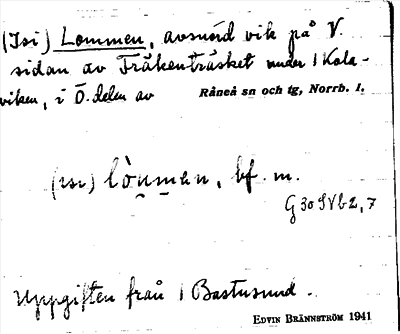 (Isi) Lommen, avsnörd vik på V.
sidan av Fräkenträsket under 1 Kala-
viken, i Ö. delen av Råneå sn och tg, Norrb. l.
(ısı) lòụmən, bf. m.
G 30 SVb 2, 7
Uppgiften från 1 Bastusund.
EDVIN BRÄNNSTRÖM 1941